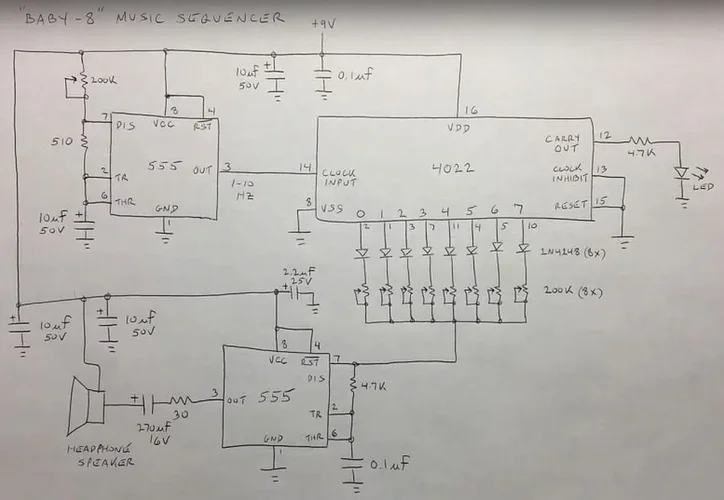 "BABY-8" MUSIC SEQUENCER
+9V
200K
10uf
50V
0.1uf
7
8
4
16
DIS
VCC
RST
VDD
510
555
OUT
3
1-10
HZ
14
CLOCK
INPUT
4022
CARRY
OUT
12
4.7K
LED
CLOCK
INHIBIT
13
2
TR
6
THR
GND
1
10uf
50V
8
VSS
RESET
15
0 1 2 3 4 5 6 7
2 1 3 7 11 4 5 10
1N4148 (8x)
200K (8x)
2.2uf
25V
10uf
50V
10uf
50V
8
4
VCC
RST
7
DIS
4.7K
3
OUT
555
TR
2
GND
1
THR
6
0.1uf
270uf
16V
30
HEADPHONE
SPEAKER